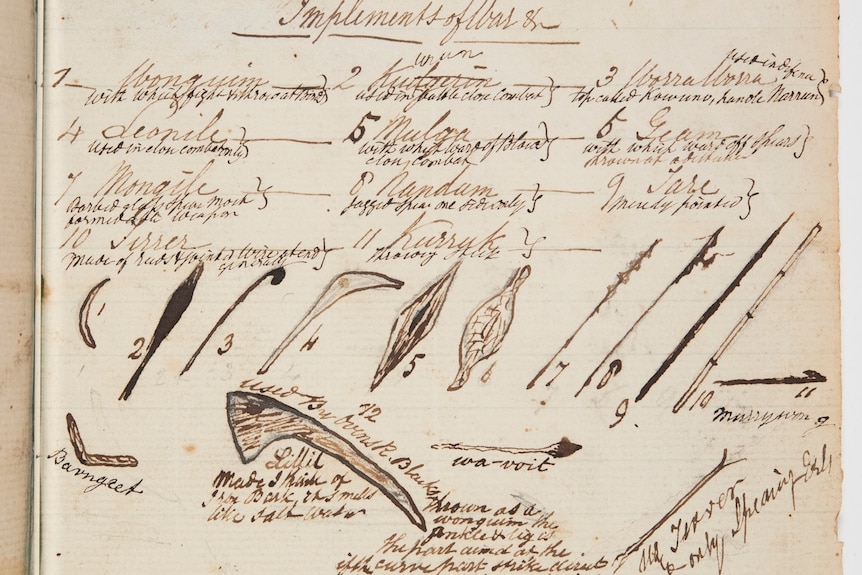 Implements of War &c
wun
used in defence
1 Wonguim 2 Kudgerin 3 Worra Worra
with which fight & throw at them used in battle close combat top called Kowuno, handle Warrum
4 Leonile 5 Mulga 6 Geam
used in close combat only with which ward of Blows with which ward off Spears
close combat thrown at a distance
7 Mongile 8 Nandum 9 Tare
Barbed glass Spear most Jagged Spear one side only Merely pointed
formidable weapon
10 Tirrer 11 Kurryk
Made of reeds & pointed generally throwing stick
1
2 3 4 5 6 7 8
9 10 11
Murrywon g
used By 12 Blacks
Barngeet
Lillil wa-voit
Made I think of
Iron Bark, it smells
like Salt water
thrown as a
wonguim the
ankle & legs
the part aimed at the
curve part strike direct
Tirrer
only Spearing Eels